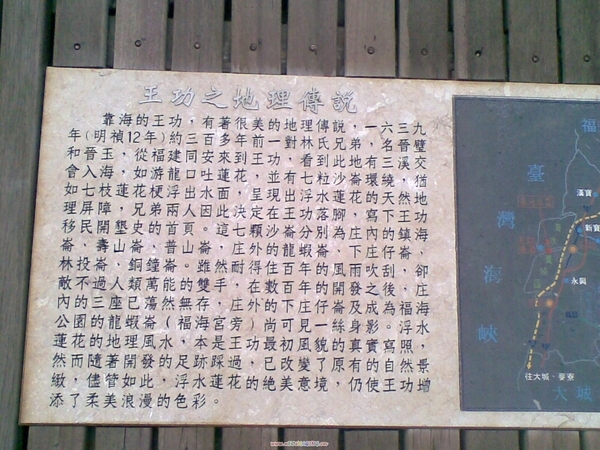 王功之地理傳說
靠海的王功，有著很美的地理傳說，一六三九
年(明禎12年)約三百多年前一對林氏兄弟，名晉璧
和晉玉，從福建同安來到王功，看到此地有三溪交
會入海，如游龍口吐蓮花，並有七粒沙崙環繞，猶
如七枝蓮花梗浮出水面，呈現出浮水蓮花的天然地
理屏障，兄弟兩人因此決定在王功落腳，為寫下王功
移民開墾史的首頁。這七顆沙崙分別為庄內的鎮海
崙、壽山崙、普山崙，庄外的龍蝦崙、庄下崙、仔崙、
林投崙、銅鐘崙。雖然耐得住百年的風吹雨刮，卻
敵不過人類萬能的雙手，在數百年的開發之後，庄
內的三座已蕩然無存，庄外的下庄仔崙及成為海
公園的龍蝦崙（福海宮旁）尚可見一絲身影。浮水
蓮花的地理風水，本是王功最初風貌的真實寫照，
然而隨著開發的足跡踩過，已改變了原有的自然景
緻，儘管如此，浮水蓮花的絕美意境，仍使王功增
添了柔美浪漫的色彩。
福
臺
灣
海
峽
漢寶
新寶
永興
往大城、麥寮
大城